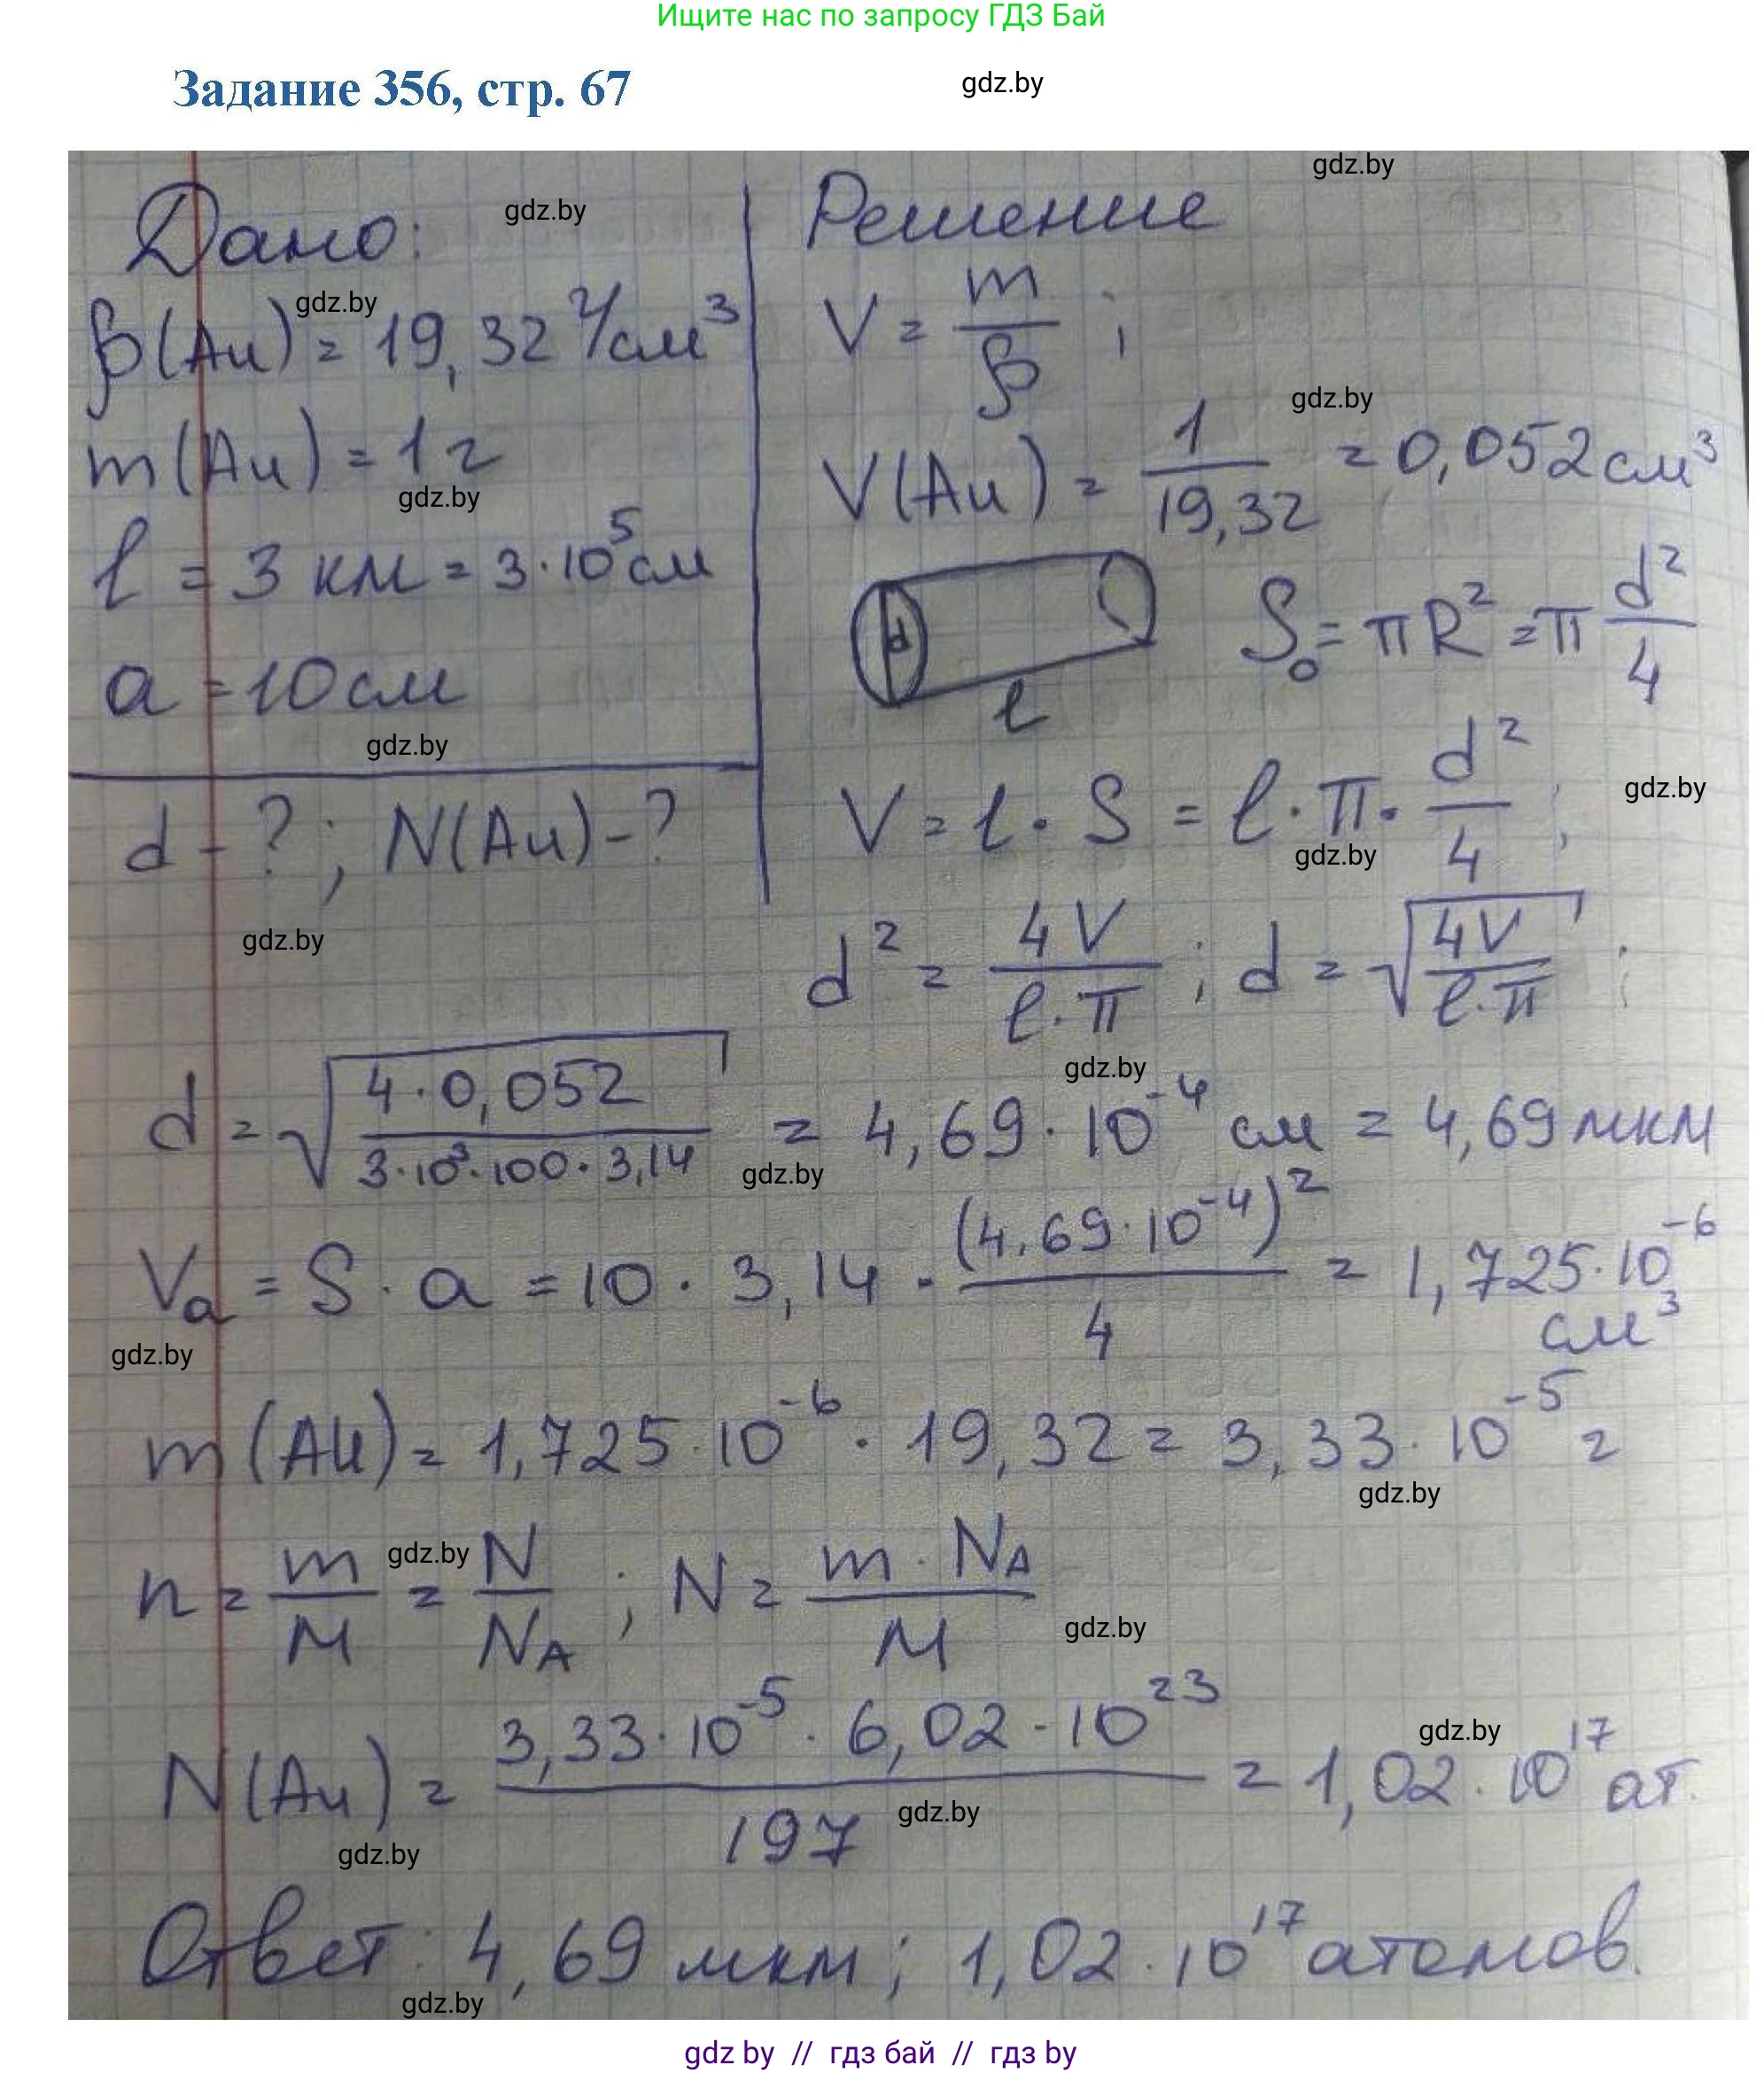 Ищите нас по запросу ГДЗ Бай
Задание 356, стр. 67
gdz.by
gdz.by
Дано:
gdz.by
ρ(Au) = 19,32 г/см³
gdz.by
m(Au) = 1 г
gdz.by
l = 3 км = 3·10⁵ см
a = 10 см
gdz.by
d - ? ; N(Au) - ?
gdz.by
Решение
V = m/ρ ;
gdz.by
V(Au) = 1/19,32 = 0,052 см³
d
l
S₀ = πR² = π d²/4
V = l · S = l · π · d²/4 ;
gdz.by
gdz.by
d² = 4V/(l·π) ; d = √(4V/(l·π)) ;
gdz.by
d = √(4·0,052/(3·10³·100·3,14)) = 4,69·10⁻⁴ см = 4,69 мкм
gdz.by
Vₐ = S · a = 10 · 3,14 · (4,69·10⁻⁴)²/4 = 1,725·10⁻⁶
см³
gdz.by
m(Au) = 1,725·10⁻⁶ · 19,32 = 3,33·10⁻⁵ г
gdz.by
n = m/M = N/N_A ; N = m·N_A/M
gdz.by
gdz.by
N(Au) = 3,33·10⁻⁵ · 6,02·10²³/197 = 1,02·10¹⁷ ат.
gdz.by
gdz.by
gdz.by
Ответ: 4,69 мкм; 1,02·10¹⁷ атомов.
gdz.by
gdz by // гдз бай // гдз by